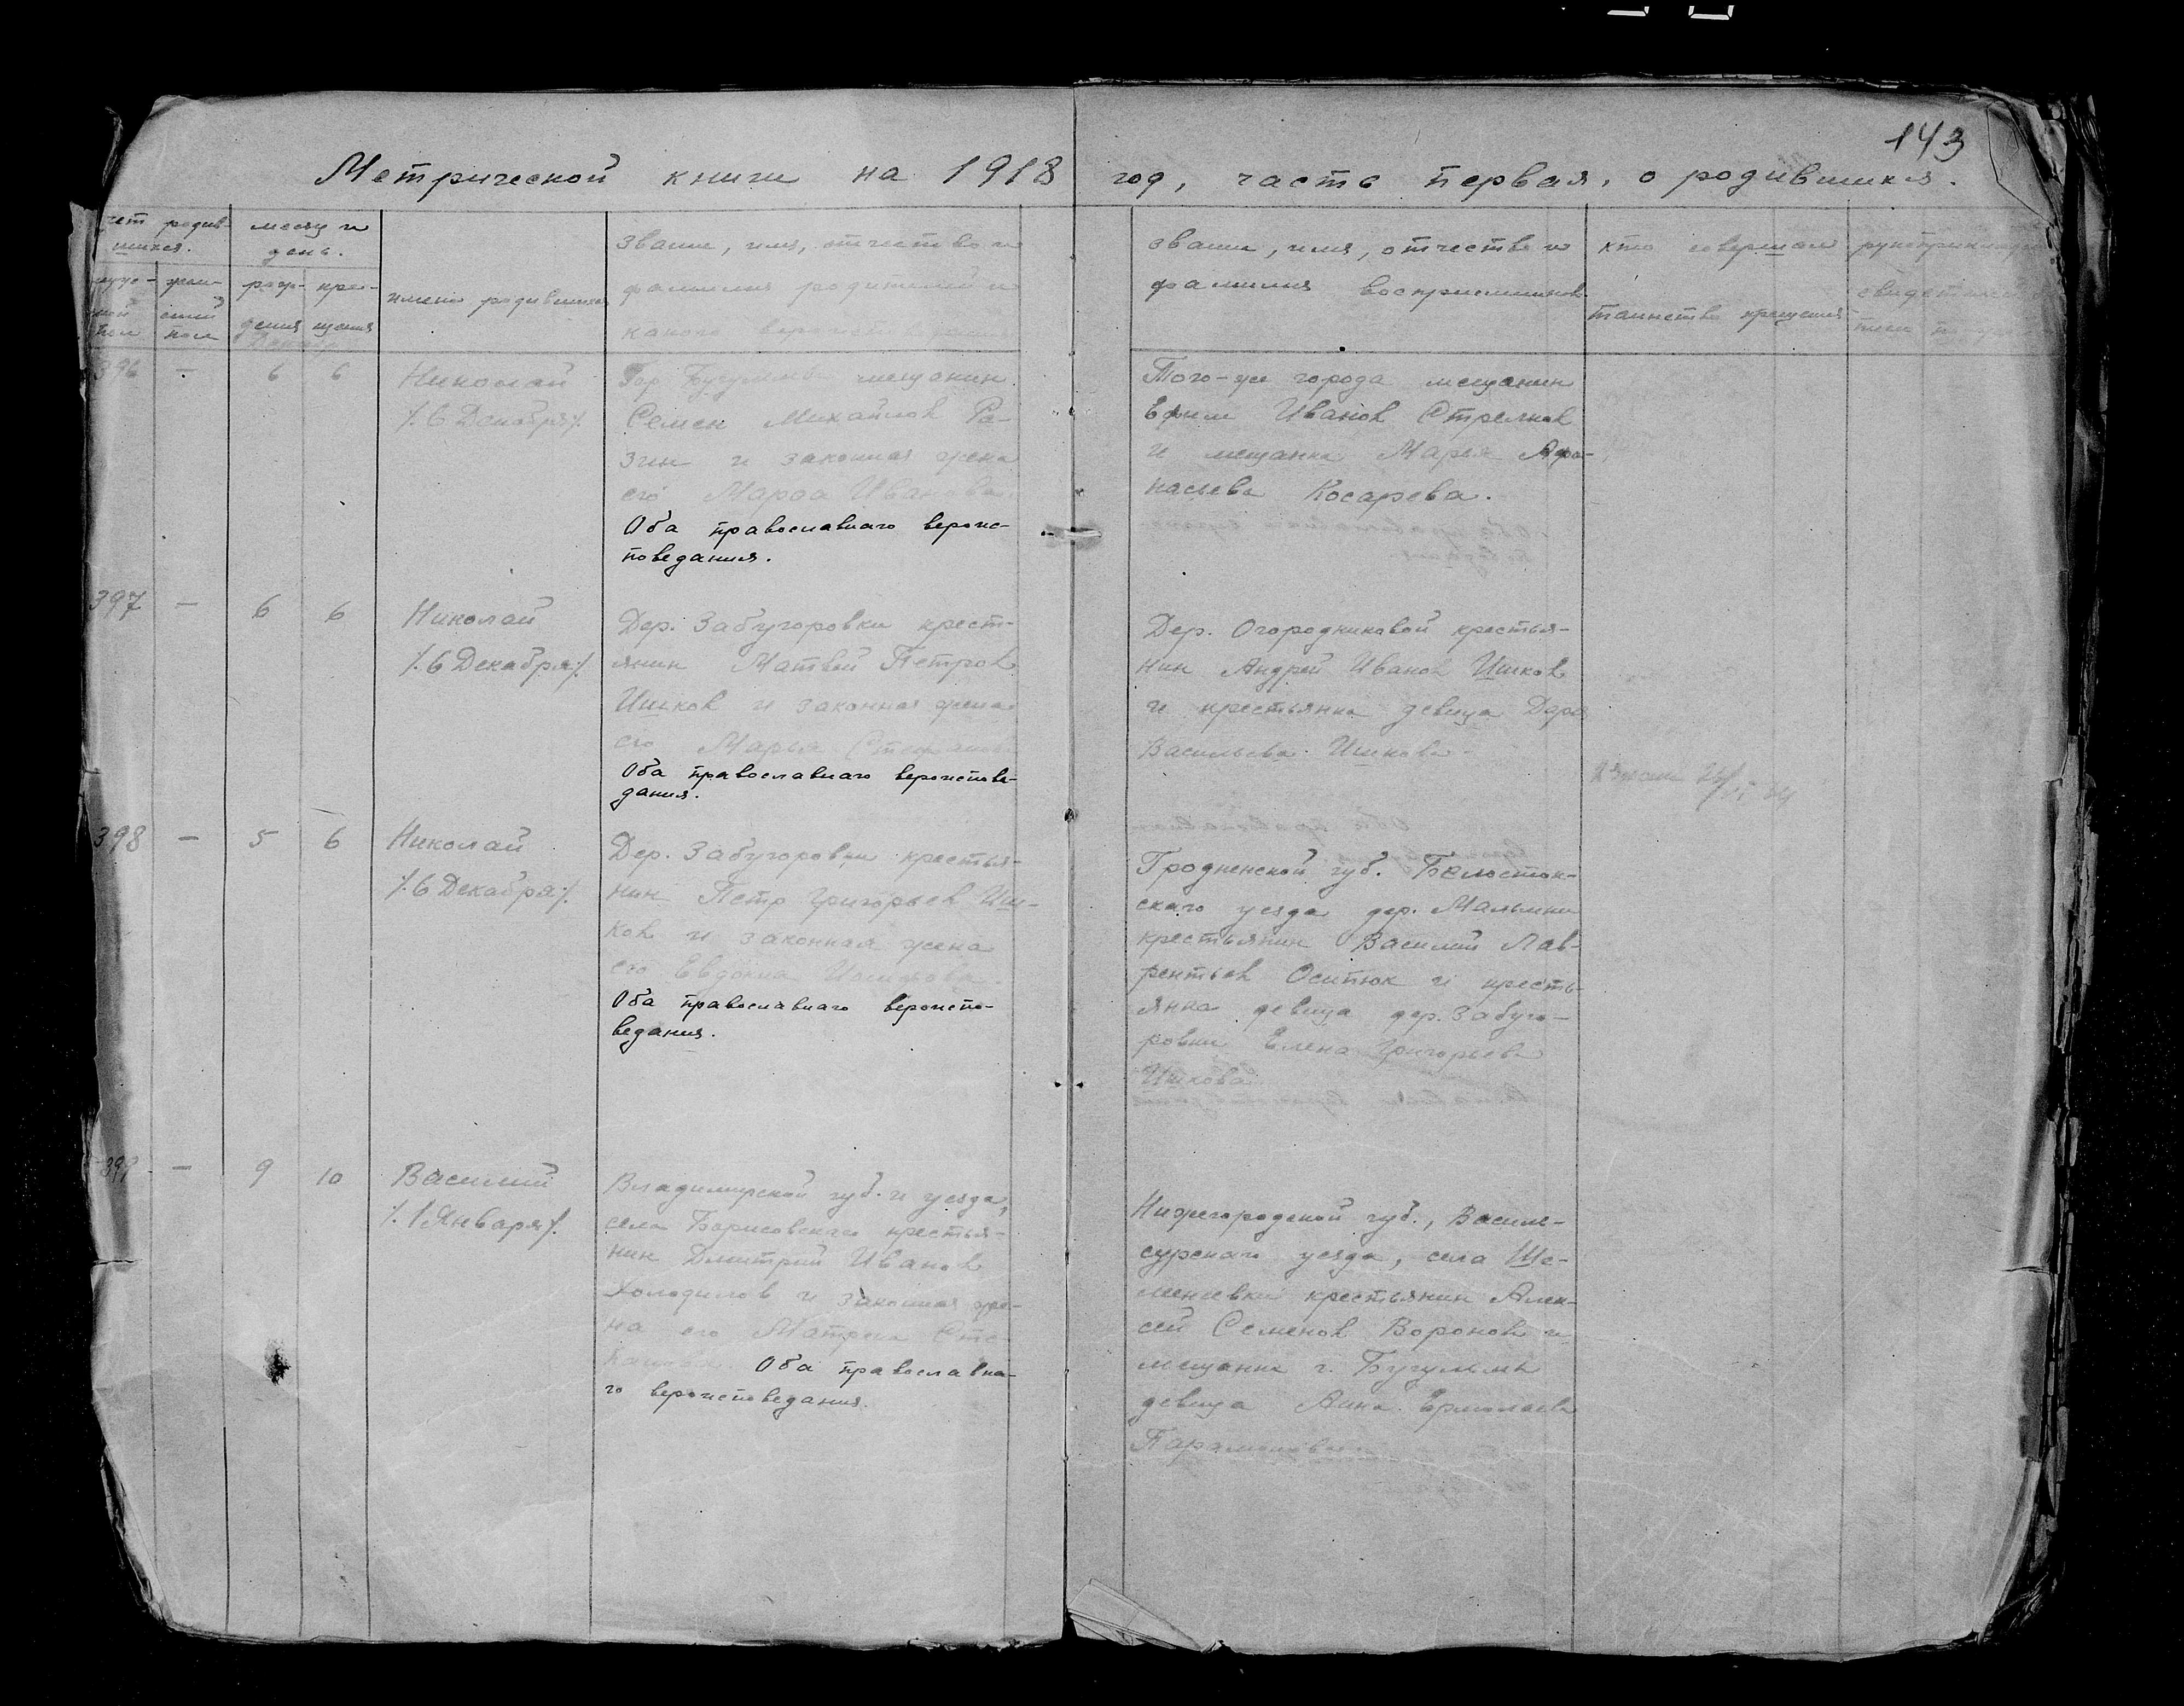 143
Метрической книги на 1918 год, часть первая, о родившихся.
счет родив-
шихся.
месяц и
день.
муже-
ской
пол
жен-
ский
пол
рож-
дения
кре-
щения
имена родившихся
звание, имя, отчество и
фамилия родителей и
какого
звание, имя, отчество и
фамилия восприемников.
кто совершал
таинство крещения
Декабрь
396 — 6 6
Николай
/.6 Декабря/.
Гор. Бугульмы мещанин
Семен Михайлов Ре-
зин и законная жена
его Марфа Иванова.
Оба православнаго вероис-
поведания.
Того-же города мещанин
Ефим Иванов Стрелков
и мещанка Марья Афа-
насьева Косарева.
397 — 6 6
Николай
/.6 Декабря/.
Дер. Забугоровки крест-
янин Матвей Петров
Ишков и законная жена
его Марья Степанова
Оба православнаго вероиспове-
дания.
Дер. Огородниковой крестья-
нин Андрей Иванов Ишков
и крестьянка девица Дарья
Васильева Ишкова.
398 — 5 6
Николай
/.6 Декабря/.
Дер. Забугоровки крестья-
нин Петр Григорьев Иш-
ков и законная жена
его Евдокия
Оба православнаго вероиспо-
ведания.
Гродненской губ. Белосток-
скаго уезда дер.
крестьянин Василий Лав-
рентьев Осипюк и кресть-
янка девица дер. Забуго-
ровки Елена Григорьева
Ишкова
399 — 9 10
Василий
/.1 Января/.
Владимирской губ. и уезда,
села Борисовскаго крестья-
нин Дмитрий Иванов
Холодилов и законная же-
на его Матрена Сте-
панова. Оба православна-
го вероисповедания.
Нижегородской губ., Василь-
сурскаго уезда, села Ше-
меневки крестьянин Алек-
сей Семенов Воронов и
мещанка г. Бугульмы
девица Анна Ермолаева
Парамонова.